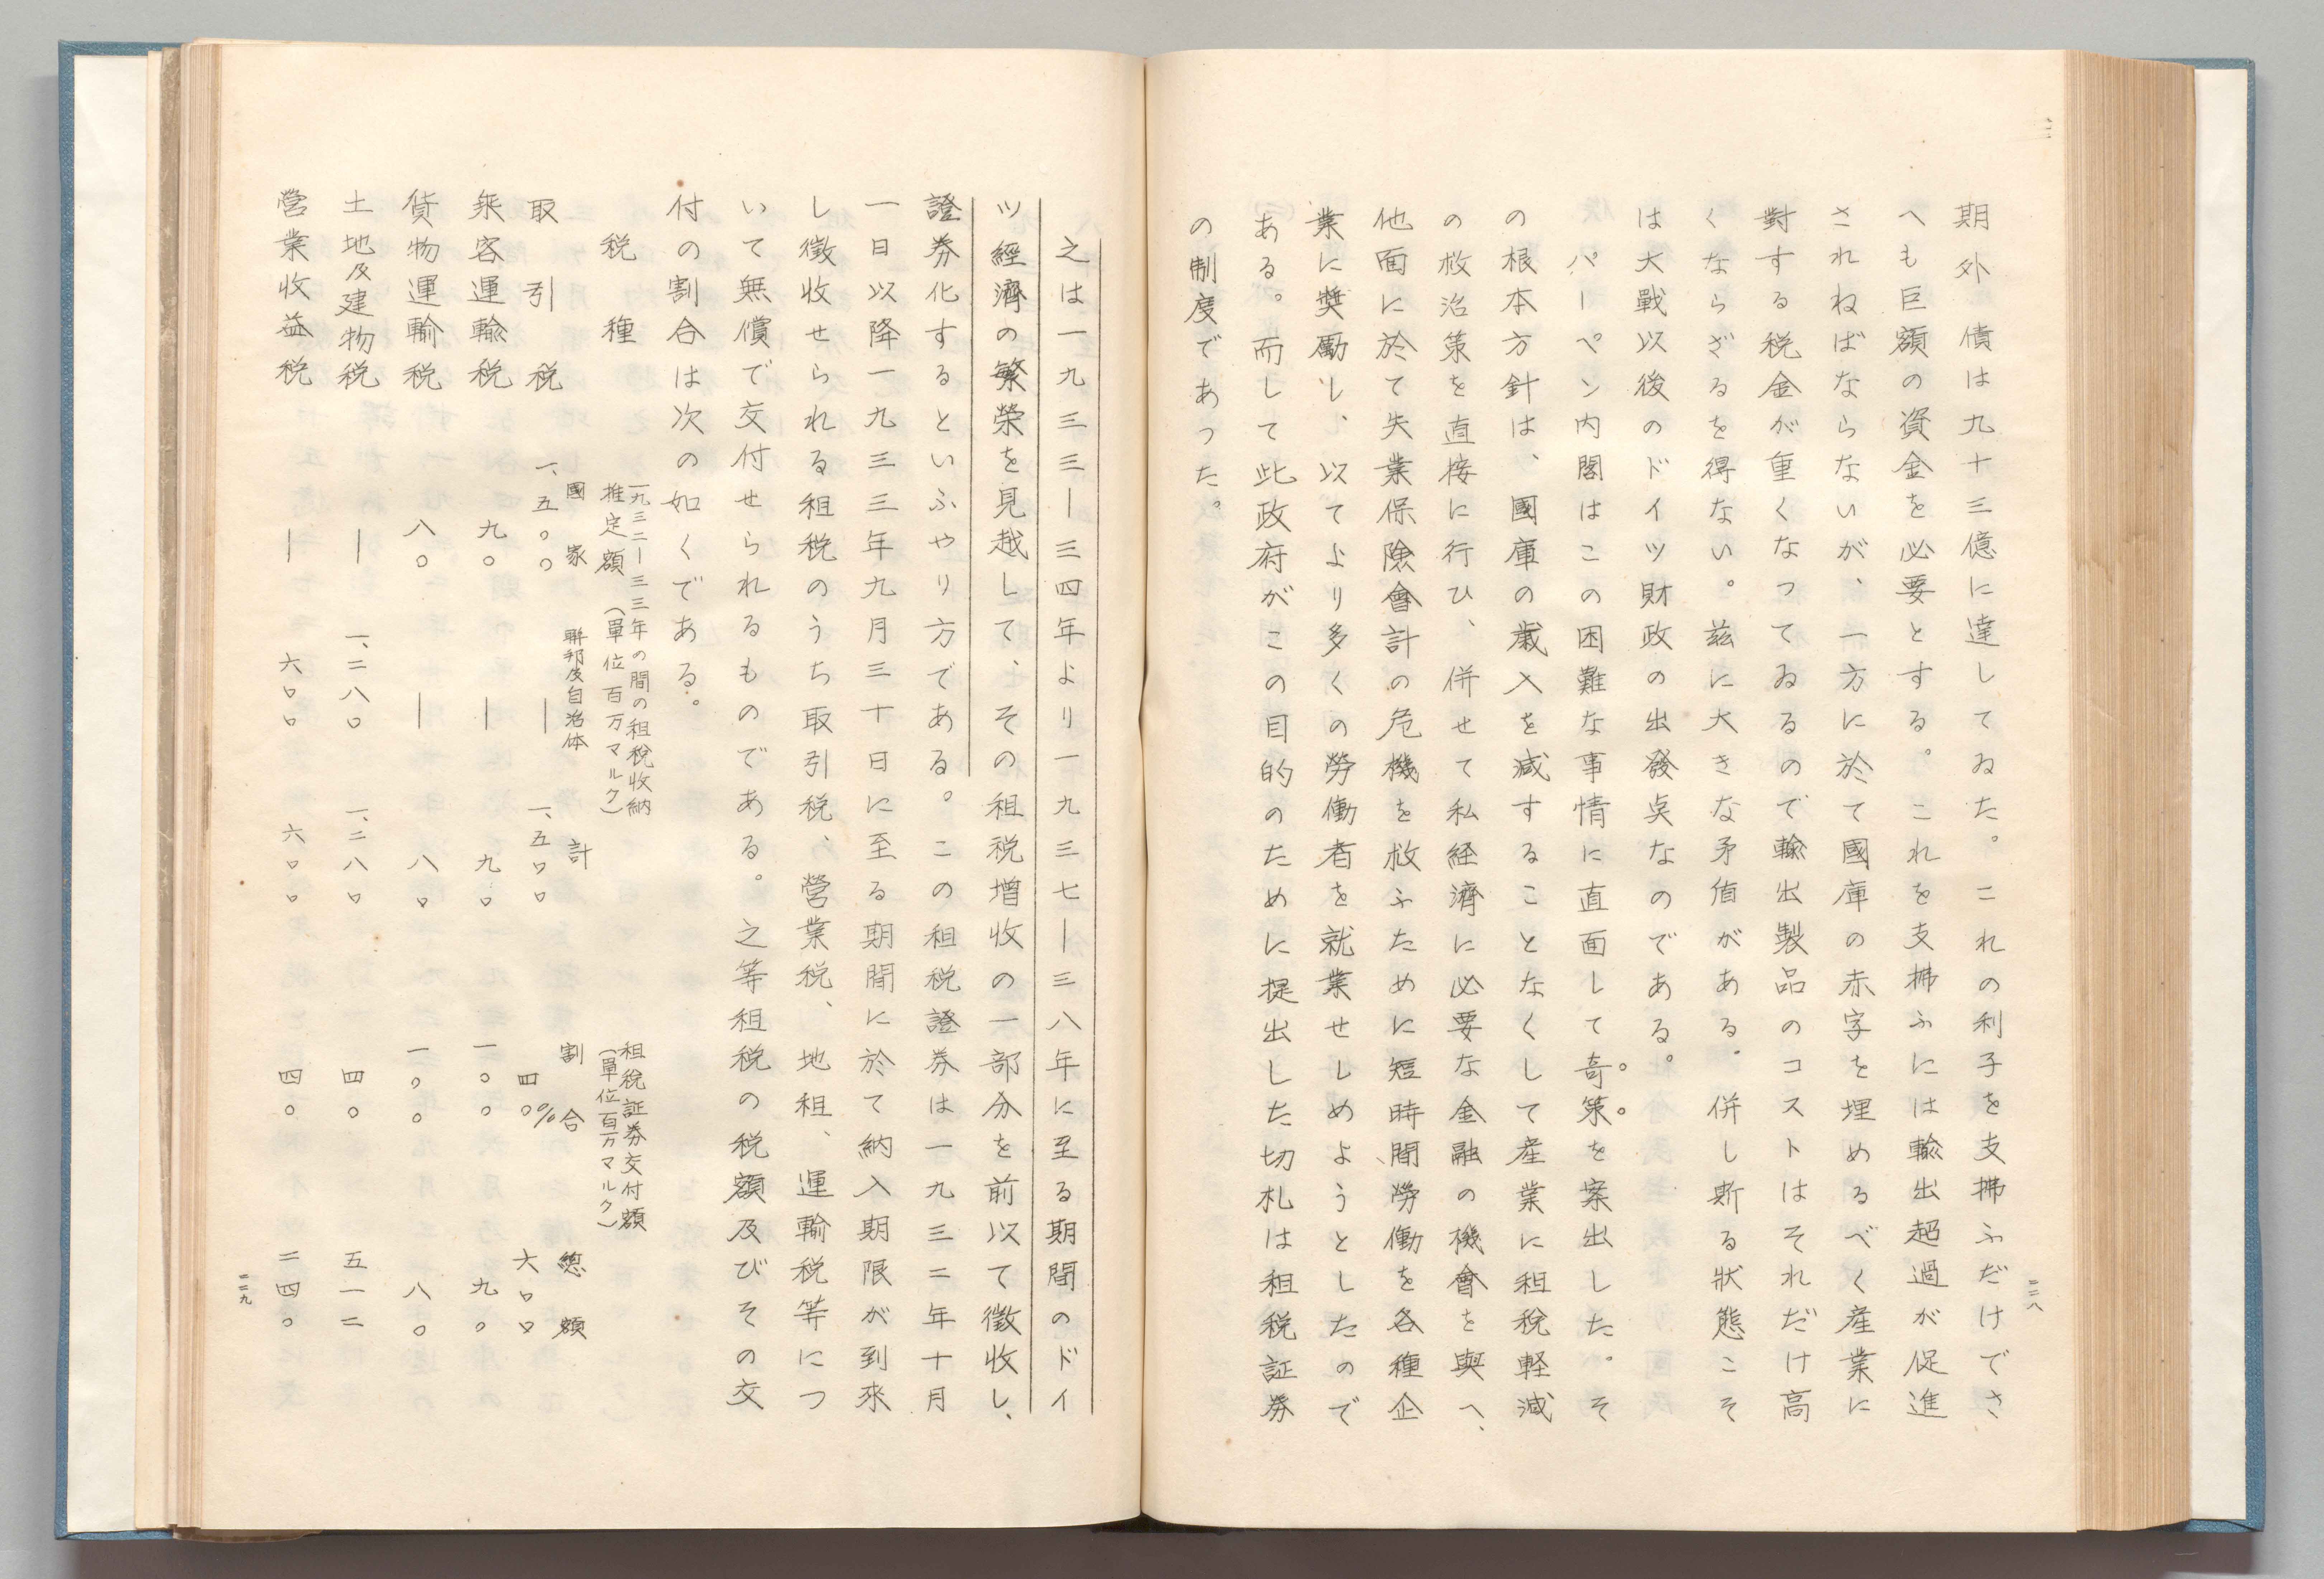 期外債は九十三億に達してゐた。これの利子を支拂ふだけでさ
へも巨額の資金を必要とする。これを支拂ふには輸出超過が促進
されねばならないが、一方に於て國庫の赤字を埋めるべく産業に
對する税金が重くなってゐるので輸出製品のコストはそれだけ高
くならざるを得ない。茲に大きな矛盾がある。併し斯る狀態こそ
は大戰以後のドイツ財政の出發点なのである。
パーペン内閣はこの困難な事情に直面して奇策を案出した。そ
の根本方針は、國庫の歳入を減することなくして産業に租税軽減
の救治策を直接に行ひ、併せて私経濟に必要な金融の機會を與へ、
他面に於て失業保險會計の危機を救ふために短時間勞働を各種企
業に奬勵し、以てより多くの勞働者を就業せしめようとしたので
ある。而して此政府がこの目的のために提出した切札は租税証券
の制度であった。
二二八
之は一九三三―三四年より一九三七―三八年に至る期間のドイ
ツ經濟の繁榮を見越して、その租税増收の一部分を前以て徴收し、
證券化するといふやり方である。この租税證券は一九三二年十月
一日以降一九三三年九月三十日に至る期間に於て納入期限が到來
し徴收せられる租税のうち取引税、營業税、地租、運輸税等につ
いて無償で交付せられるものである。之等租税の税額及びその交
付の割合は次の如くである。
一九三二―三三年の間の租税收納
推定額 (單位百万マルク)
租税証券交付額
(單位百万マルク)
税種 國家 聯邦及自治体 計 割合 總額
取引税 一、五〇〇 ― 一、五〇〇 四〇% 六〇〇
乘客運輸税 九〇 ― 九〇 一〇〇 九〇
貨物運輸税 八〇 ― 八〇 一〇〇 八〇
土地及建物税 ― 一、二八〇 一、二八〇 四〇 五一二
營業收益税 ― 六〇〇 六〇〇 四〇 二四〇
二二九